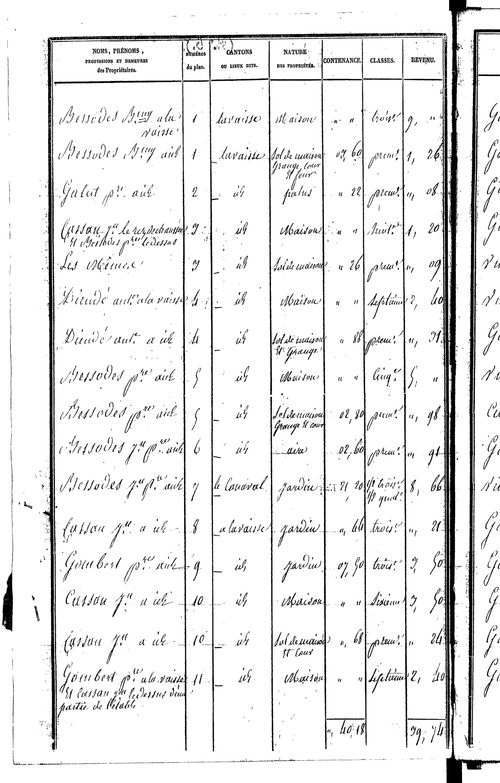 NOMS, PRÉNOMS, PROFESSIONS ET DEMEURES des Propriétaires. | NUMÉROS du plan. | CANTONS OU LIEUX DITS. | NATURE DES PROPRIÉTÉS. | CONTENANCE. | CLASSES. | REVENU.
Bessodes Bmy a la vaisse 1 lavaisse Maison " " trois. 9, "
Bessodes Bmy aid 1 lavaisse Sol de maison Grange, cour et four 03, 60 prem. 1, 26
Galut pre aid 2 id patus " 22 prem. ", 08
Cassan jn le rez de chaussée et Bessodes pre le dessus 3 id Maison " " 1, 20
Les Mêmes 3 id Sol de maison " 26 prem. ", 09
Dieudé ant. a la vaisse 4 id Maison " " septième 2, 40
Dieudé ant. a id 4 id Sol de maison et Grange " 88 prem. ", 31
Bessodes pre aid 5 id Maison " " cinq. 5, "
Bessodes pre aid 5 id Sol de maison Grange et cour 02, 80 prem. ", 98
Bessodes jn pre aid 6 id aire 02, 60 prem. ", 91
Bessodes jn pre aid 7 jardin 21, 20 8, 66
Cassan jn a id 8 a lavaisse jardin ", 46 trois. ", 21
Gombert pre aid 9 id jardin 07, 50 trois. 3, 50
Cassan jn a id 10 id Maison " " Sixième 3, 50
Cassan jn a id 10 id Sol de maison et Cour ", 68 prem. ", 24
Gombert pre a la vaisse et Cassan jn le dessus d'une partie de l'étable 11 id Maison " " septième 2, 40
", 40, 18 39, 74